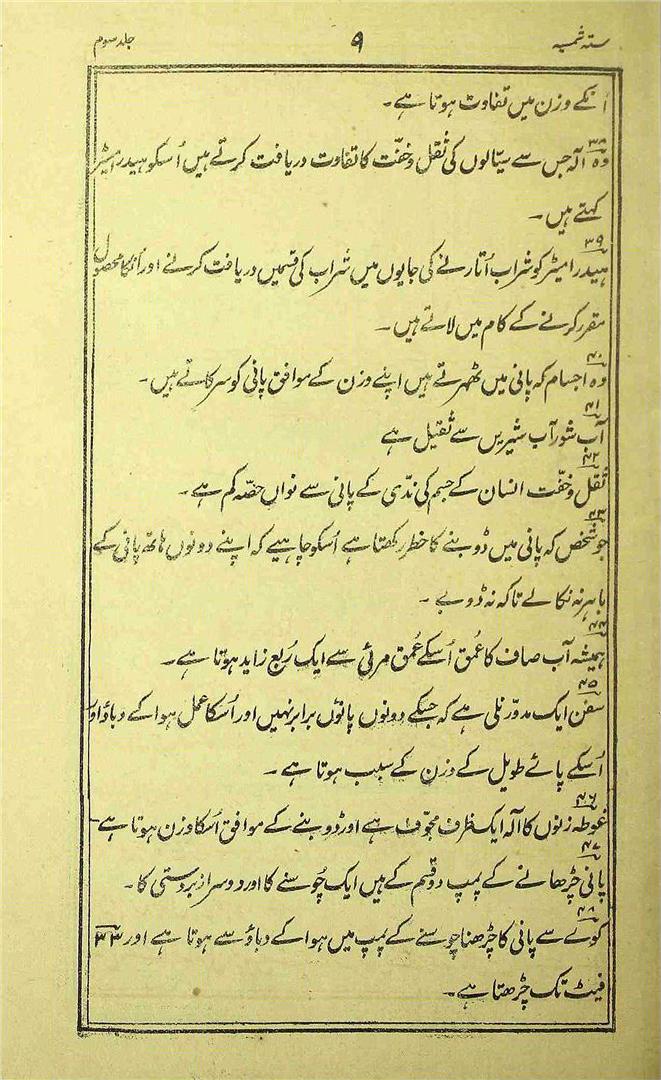 ستہ شمسیہ ۹ جلد سوم
اُنکے وزن میں تفاوت ہوتا ہے۔
۳۸
وہ آلہ جس سے سیّالوں کی ثقل و خفّت کا تفاوت دریافت کرتے ہیں اُسکو ہیدرامیٹر
کہتے ہیں۔
۳۹
ہیدرامیٹر کو شراب اُتارنے کی جایوں میں شراب کی قسمیں دریافت کرنے اور اُنکا محصول
مقرر کرنے کے کام میں لاتے ہیں۔
۴۰
وہ اجسام کہ پانی میں ٹھہرتے ہیں اپنے وزن کے موافق پانی کو سرکاتے ہیں۔
۴۱
آب شور آب شیریں سے ثقیل ہے
۴۲
ثقل و خفّت انسان کے جسم کی ندّی کے پانی سے نواں حصّہ کم ہے۔
۴۳
جو شخص کہ پانی میں ڈوبنے کا خطر رکھتا ہے اُسکو چاہیے کہ اپنے دونوں ہاتھ پانی کے
باہر نہ نکالے تاکہ نہ ڈوبے۔
۴۴
ہمیشہ آب صاف کا عُمق اُسکے عُمق مرئی سے ایک رُبع زاید ہوتا ہے۔
۴۵
سفن ایک مدوّر نلی ہے کہ جسکے دونوں پانوں برابر نہیں اور اُسکا عمل ہوا کے دباؤ اور
اُسکے پائے طویل کے وزن کے سبب ہوتا ہے۔
۴۶
غوطہ زنوں کا آلہ ایک ظرف مجوّف ہے اور ڈوبنے کے موافق اُسکا وزن ہوتا ہے۔
۴۷
پانی چڑھانے کے پمپ دو قسم کے ہیں ایک چُوسنے کا اور دوسرا زبردستی کا۔
۴۸
کوے سے پانی کا چڑھنا چوسنے کے پمپ میں ہوا کے دباؤ سے ہوتا ہے اور ۳۳
فیٹ تک چڑھتا ہے۔